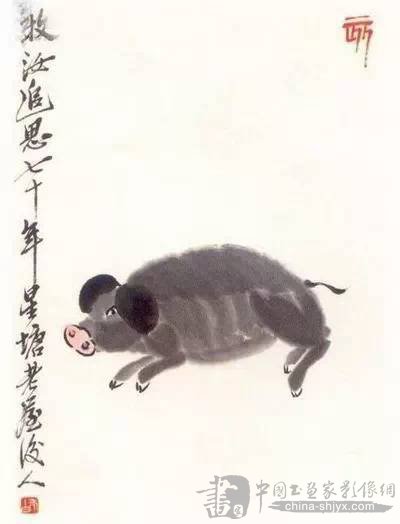 牧汝追思七十年星塘老屋後人
中国书画家影像網
www.china-shjyx.com